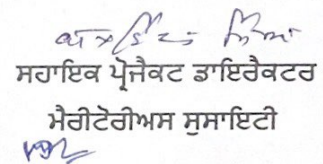 ਸਹਾਇਕ ਪ੍ਰੋਜੈਕਟ ਡਾਇਰੈਕਟਰ
ਮੈਰੀਟੋਰੀਅਸ ਸੁਸਾਇਟੀ